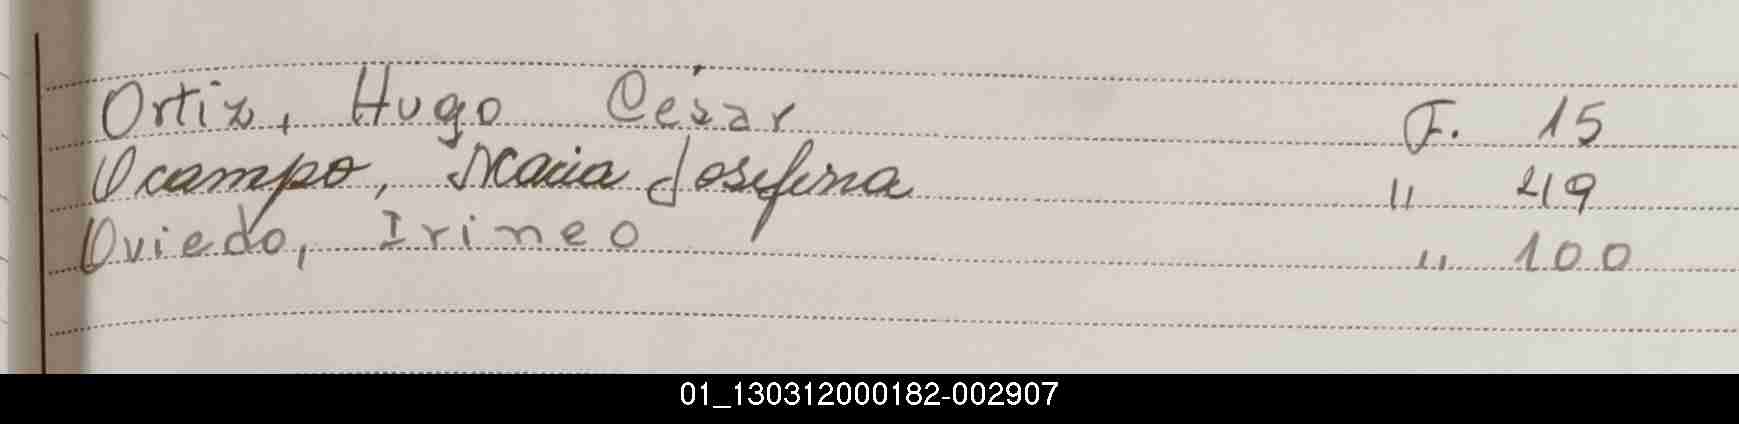 Ortiz, Hugo César F. 15
Ocampo, Maria Josefina " 49
Oviedo, Irineo " 100
01_130312000182-002907